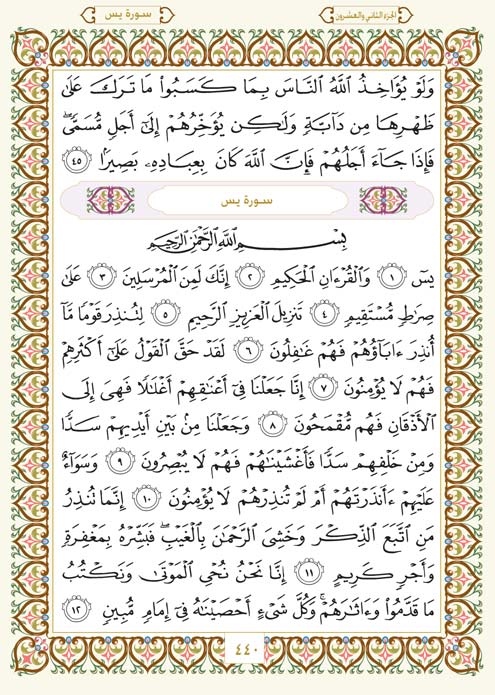 الجزء الثاني والعشرون
سورة يس
وَلَوْ يُؤَاخِذُ ٱللَّهُ ٱلنَّاسَ بِمَا كَسَبُوا۟ مَا تَرَكَ عَلَىٰ
ظَهْرِهَا مِن دَآبَّةٍ وَلَٰكِن يُؤَخِّرُهُمْ إِلَىٰٓ أَجَلٍ مُّسَمًّى ۖ
فَإِذَا جَآءَ أَجَلُهُمْ فَإِنَّ ٱللَّهَ كَانَ بِعِبَادِهِۦ بَصِيرًۢا ٤٥
سورة يس
بِسْمِ ٱللَّهِ ٱلرَّحْمَٰنِ ٱلرَّحِيمِ
يسٓ ١ وَٱلْقُرْءَانِ ٱلْحَكِيمِ ٢ إِنَّكَ لَمِنَ ٱلْمُرْسَلِينَ ٣ عَلَىٰ
صِرَٰطٍ مُّسْتَقِيمٍ ٤ تَنزِيلَ ٱلْعَزِيزِ ٱلرَّحِيمِ ٥ لِتُنذِرَ قَوْمًا مَّآ
أُنذِرَ ءَابَآؤُهُمْ فَهُمْ غَٰفِلُونَ ٦ لَقَدْ حَقَّ ٱلْقَوْلُ عَلَىٰٓ أَكْثَرِهِمْ
فَهُمْ لَا يُؤْمِنُونَ ٧ إِنَّا جَعَلْنَا فِىٓ أَعْنَٰقِهِمْ أَغْلَٰلًا فَهِىَ إِلَى
ٱلْأَذْقَانِ فَهُم مُّقْمَحُونَ ٨ وَجَعَلْنَا مِنۢ بَيْنِ أَيْدِيهِمْ سَدًّا
وَمِنْ خَلْفِهِمْ سَدًّا فَأَغْشَيْنَٰهُمْ فَهُمْ لَا يُبْصِرُونَ ٩ وَسَوَآءٌ
عَلَيْهِمْ ءَأَنذَرْتَهُمْ أَمْ لَمْ تُنذِرْهُمْ لَا يُؤْمِنُونَ ١٠ إِنَّمَا تُنذِرُ
مَنِ ٱتَّبَعَ ٱلذِّكْرَ وَخَشِىَ ٱلرَّحْمَٰنَ بِٱلْغَيْبِ ۖ فَبَشِّرْهُ بِمَغْفِرَةٍ
وَأَجْرٍ كَرِيمٍ ١١ إِنَّا نَحْنُ نُحْىِ ٱلْمَوْتَىٰ وَنَكْتُبُ
مَا قَدَّمُوا۟ وَءَاثَٰرَهُمْ ۚ وَكُلَّ شَىْءٍ أَحْصَيْنَٰهُ فِىٓ إِمَامٍ مُّبِينٍ ١٢
٤٤٠